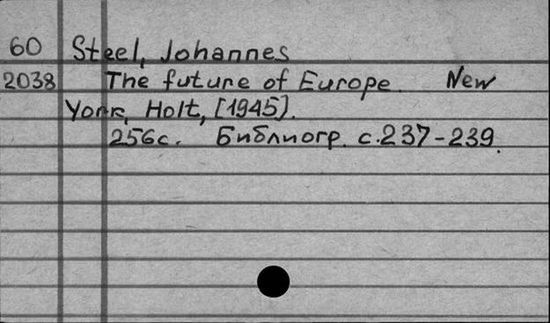 60 Steel, Johannes
2038 The future of Europe. New
York, Holt, [1945].
256с. Библиогр. с.237-239.